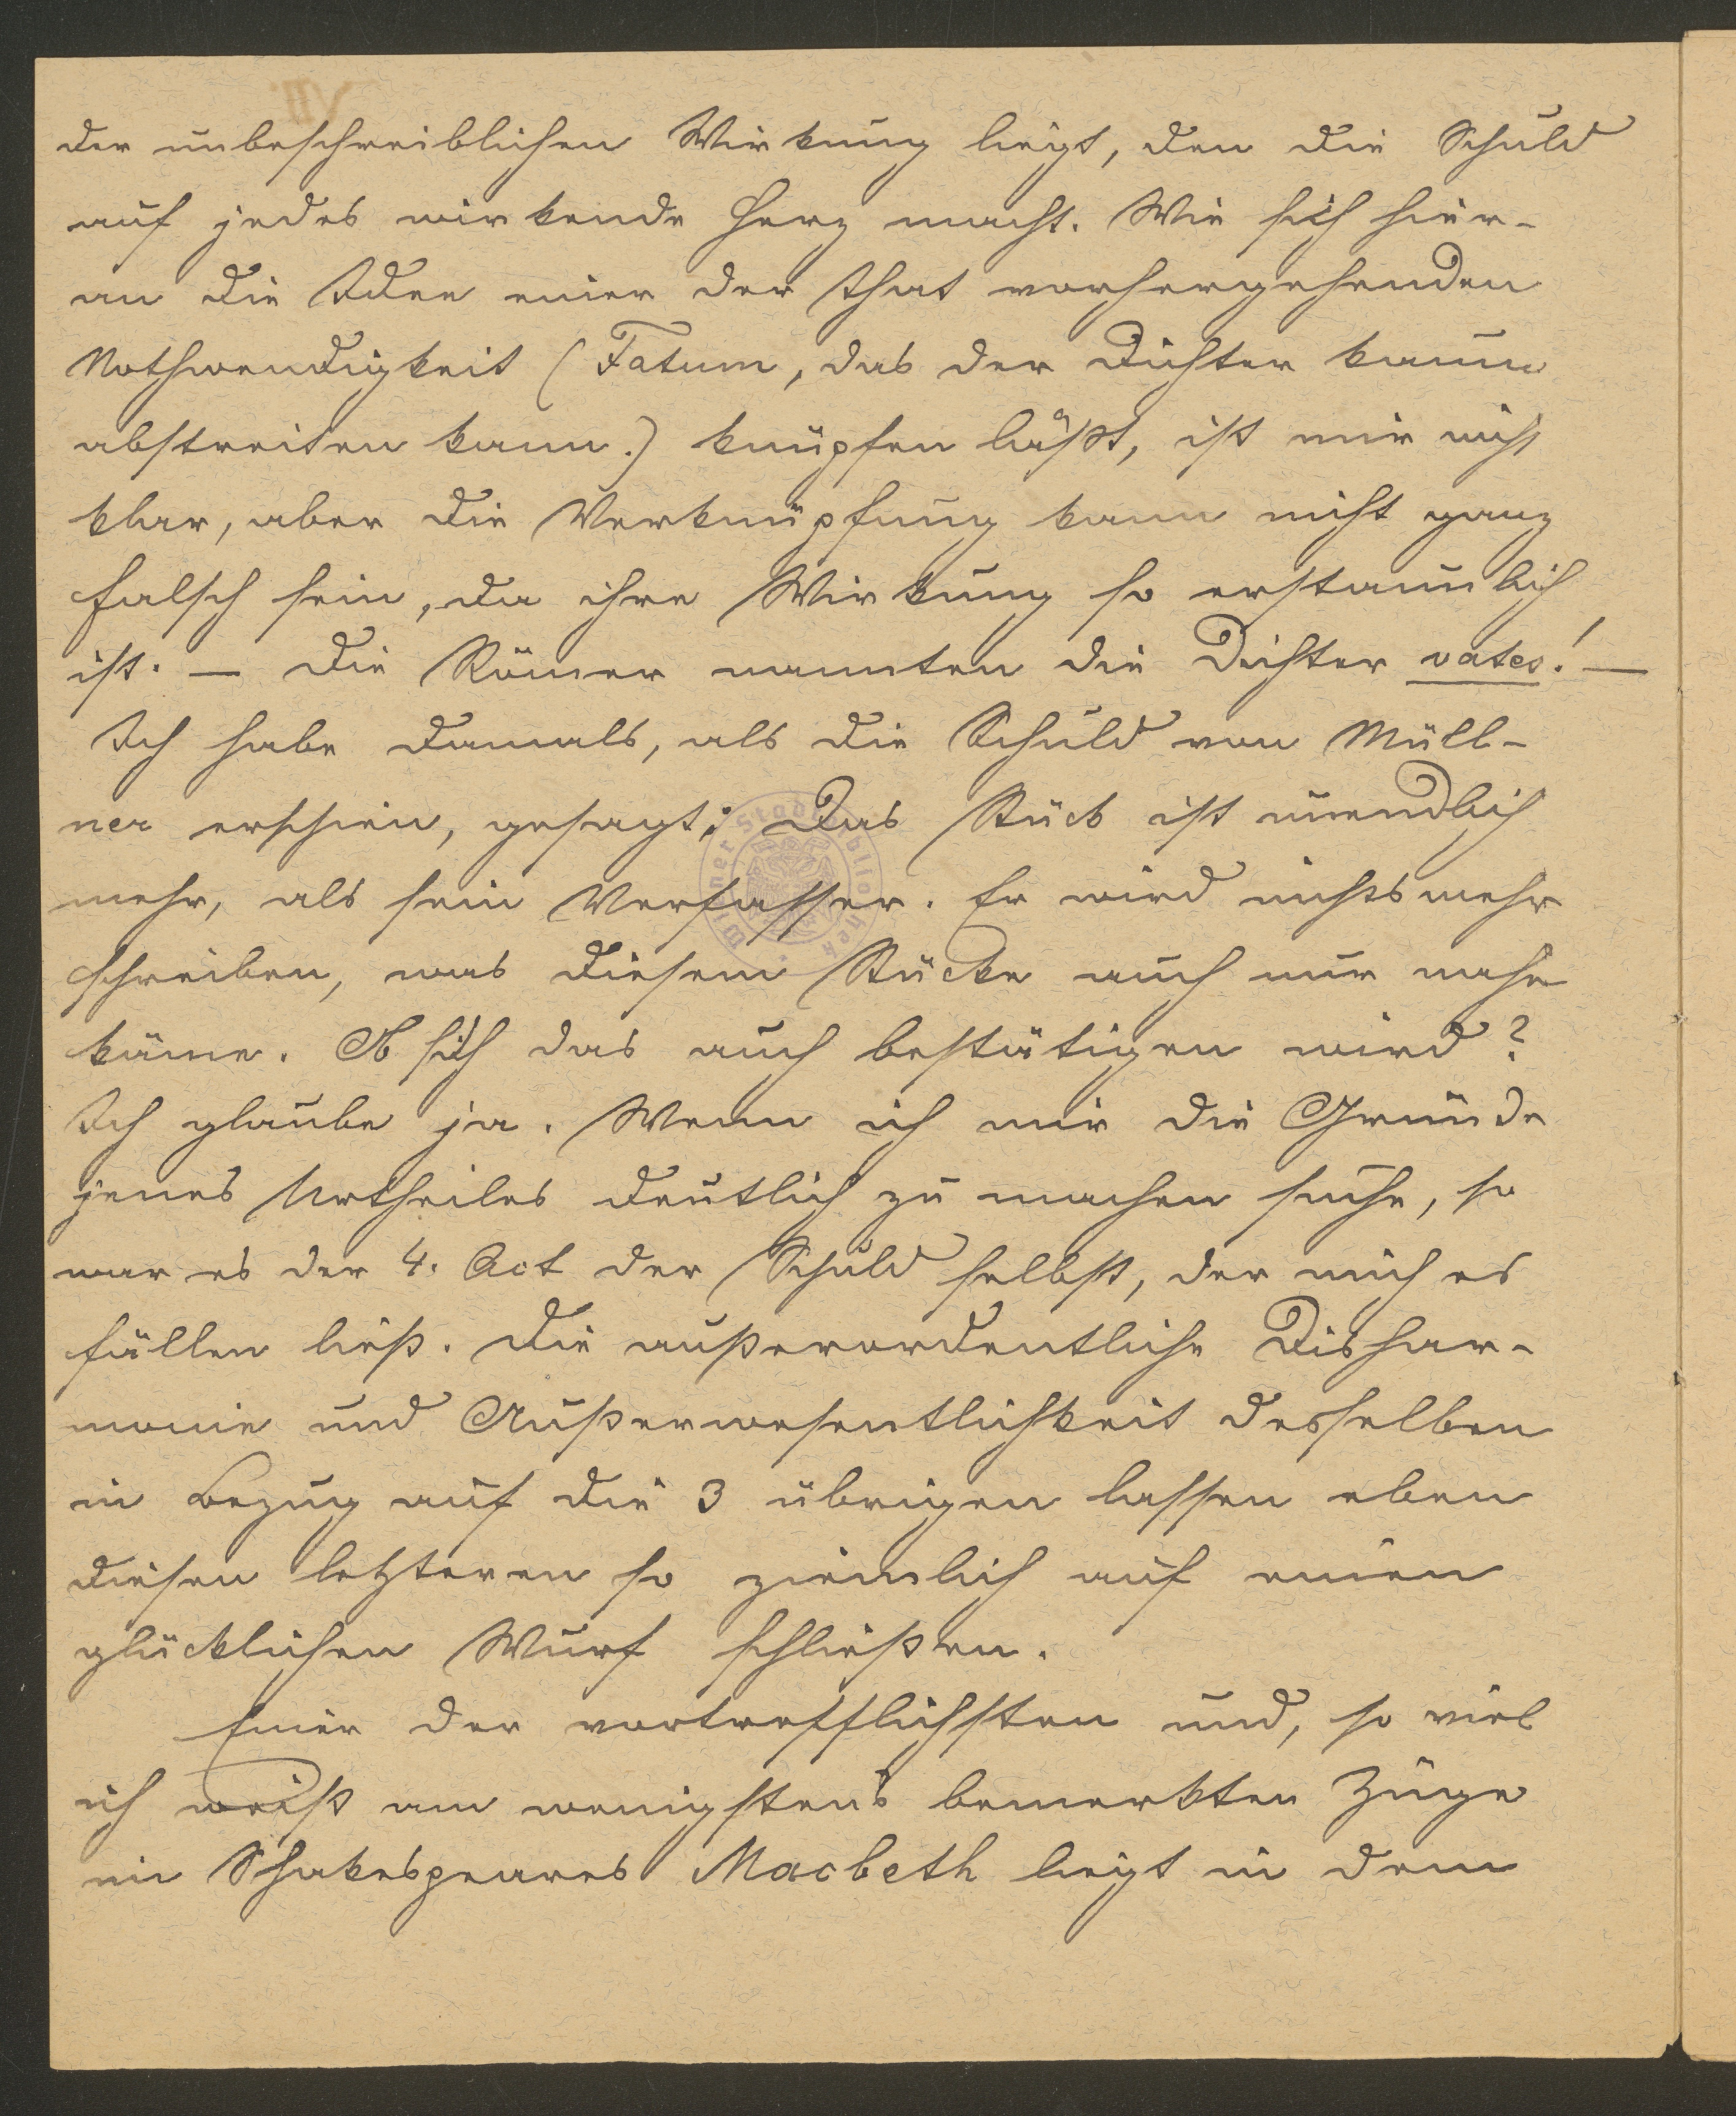 der unbeschreiblichen Wirkung liegt, den die Schuld
auf jedes wirkende Herz macht. Wie sich hier-
an die Idee einer der That vorhergehenden
Nothwendigkeit (Fatum, das der Dichter kaum
abstreiten kann.) knüpfen läßt, ist mir nicht
klar, aber die Verknüpfung kann nicht ganz
falsch sein, da ihre Wirkung so erstaunlich
ist. — Die Römer nannten die Dichter vates! —
Ich habe damals, als die Schuld von Müll-
ner erschien, gesagt: Das Stück ist unendlich
mehr, als sein Verfasser. Er wird nichts mehr
schreiben, was diesem Stücke auch nur nahe
käme. Ob sich das auch bestätigen wird?
Ich glaube ja. Wenn ich mir die Gründe
jenes Urtheiles deutlich zu machen suche, so
war es der 4. Act der Schuld selbst, der mich es
fällen ließ. Die außerordentliche Dishar-
monie und Außerwesentlichkeit desselben
in Bezug auf die 3 übrigen lassen eben
diesen letzteren so ziemlich auf einen
glücklichen Wurf schließen.
Einer der vortrefflichsten und, so viel
ich weiß am wenigstens bemerkten Züge
in Shakespeares Macbeth liegt in dem
Wiener Stadtbibliothek
VII.